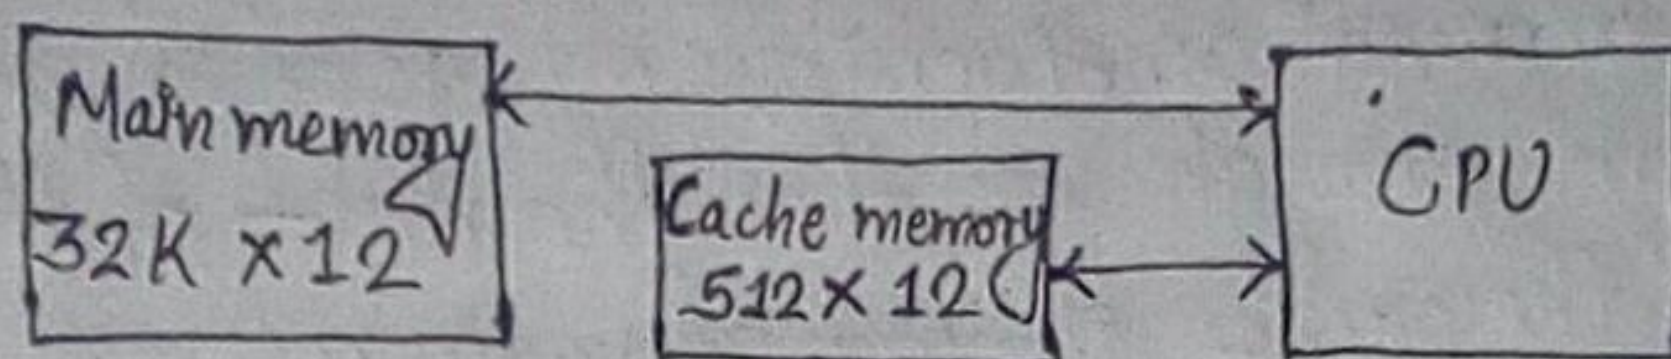 Main memory
32K X12
Cache memory
512X 12
CPU